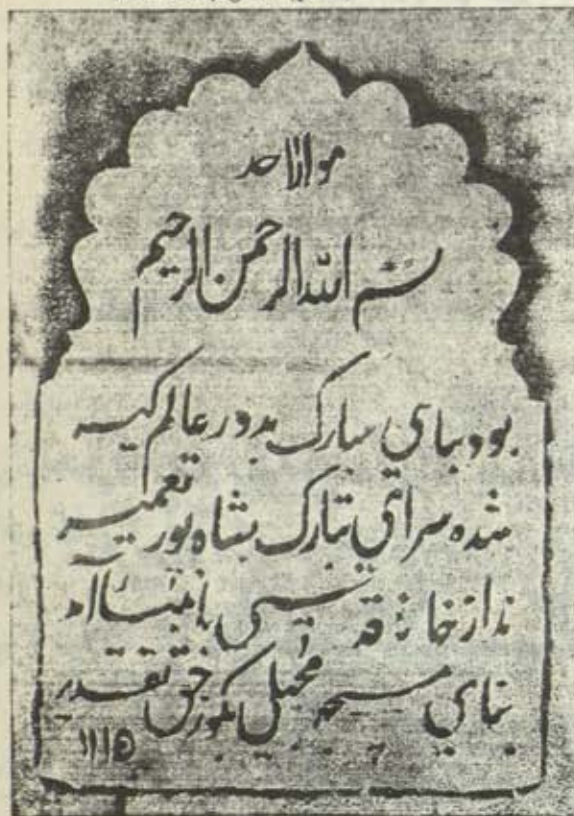 هوالاحد
بسم الله الرحمن الرحيم
بود بنای مبارک بدور عالم گیر
شده سرای تبارک بشاه پور تعمیر
ندا ز خانه قدسی
بنای مسجد بگو ز حق تقدیر
۱۱۱۵